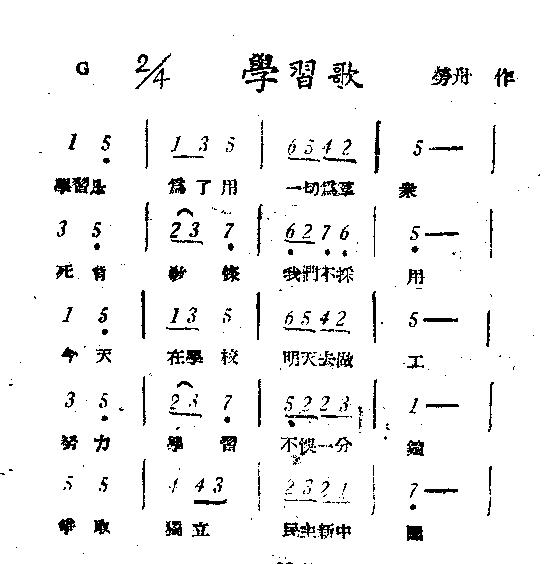 G 2/4 學習歌 勞舟 作
1 5 | 1 3 5 | 6 5 4 2 | 5 — |
學習 爲了用 一切爲羣衆
3 5 | 2 3 7 | 6 2 7 6 | 5 — |
死背 教條 我們不採用
1 5 | 1 3 5 | 6 5 4 2 | 5 — |
今天 在學校 明天去做工
3 5 | 2 3 7 | 5 2 2 3 | 1 — |
努力 學習 不悞一分鐘
5 5 | 4 4 3 | 2 3 2 1 | 7 — |
爭取 獨立 民主新中國